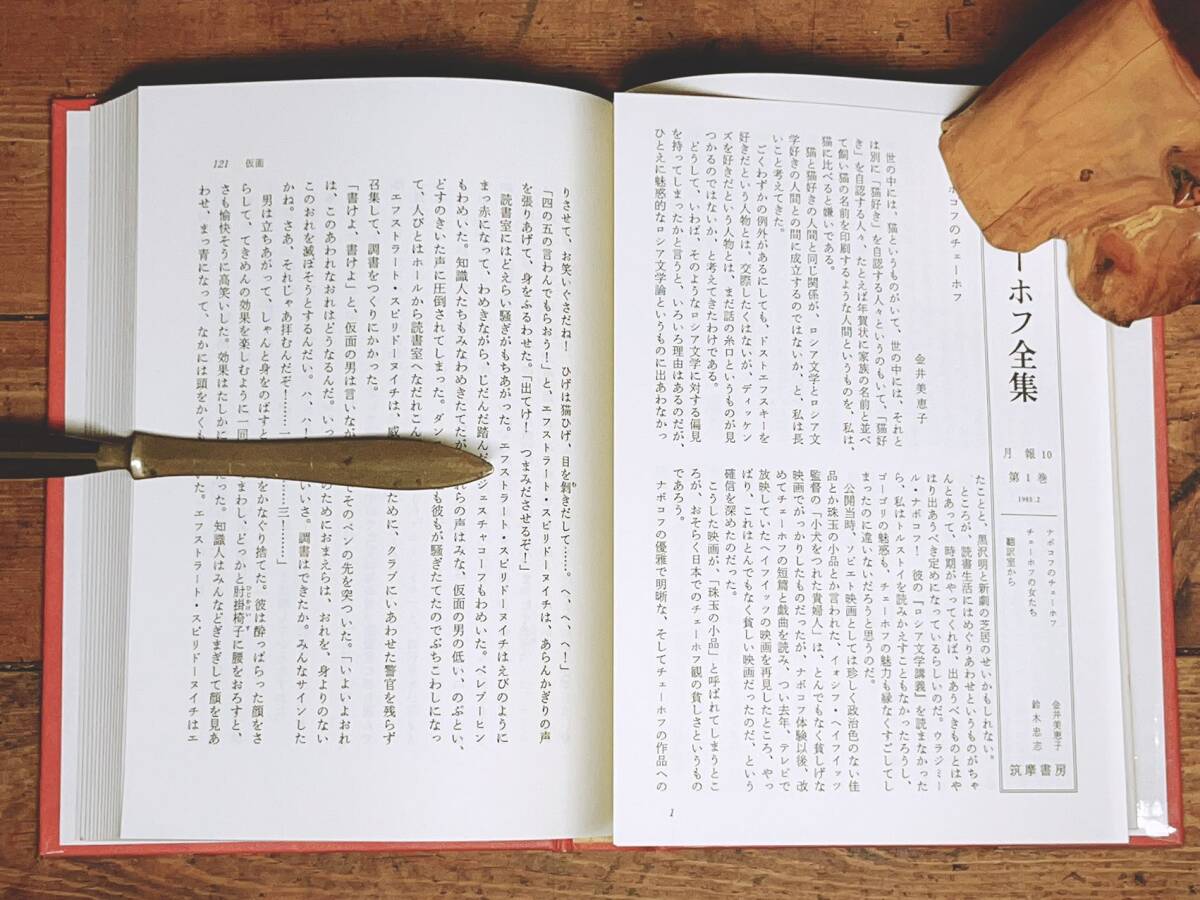 ーホフ全集
月報10
第1巻
1988.2
ナボコフのチェーホフ
金井美恵子
チェーホフの女たち
鈴木忠志
翻訳室から
筑摩書房
ボコフのチェーホフ
金井美恵子
世の中には、猫というものがいて、世の中には、それと
は別に「猫好き」を自認する人々というのもいて、「猫好
き」を自認する人々、たとえば年賀状に家族の名前と並べ
て飼い猫の名前を印刷するような人間というものを、私は、
猫に比べると嫌いである。
猫と猫好きの人間と同じ関係が、ロシア文学とロシア文
学好きの人間との間に成立するのではないか、と、私は長
いこと考えてきた。
ごくわずかの例外があるにしても、ドストエフスキーを
好きだという人物とは、交際したくはないが、ディッケン
ズを好きだという人物とは、まだ話の糸口というものが見
つかるのではないか、と考えてきたわけである。
どうして、いわば、そのようなロシア文学に対する偏見
を持ってしまったかと言うと、いろいろ理由はあるのだが、
ひとえに魅惑的なロシア文学論というものに出あわなかっ
たことと、黒沢明と新劇の芝居のせいかもしれない。
ところが、読書生活にはめぐりあわせというものがちゃ
んとあって、時期がやってくれば、出あうべきものとはや
はり出あうべき定めになっているらしいのだ。ウラジミー
ル・ナボコフ! 彼の『ロシア文学講義』を読まなかった
ら、私はトルストイを読みかえすこともなかったろうし、
ゴーゴリの魅惑も、チェーホフの魅力も縁なくすごしてし
まったのに違いないだろうと思うのだ。
公開当時、ソビエト映画としては珍しく政治色のない佳
品とか珠玉の小品とか言われた、イォシフ・ヘイフィッツ
監督の「小犬をつれた貴婦人」は、とんでもなく貧しげな
映画でがっかりしたものだったが、ナボコフ体験以後、改
めてチェーホフの短篇と戯曲を読み、つい去年、テレビで
放映していたヘイフィッツの映画を再見したところ、やっ
ぱり、これはとんでもなく貧しい映画だったのだ、という
確信を深めたのだった。
こうした映画が、「珠玉の小品」と呼ばれてしまうとこ
ろが、おそらく日本でのチェーホフ観の貧しさというもの
であろう。
ナボコフの優雅で明晰な、そしてチェーホフの作品への
1
121 仮面
りさせて、お笑いぐさだね! ひげは猫ひげ、目を剝きだして……。へ、へ、へ!」
「四の五の言わんでもらおう!」と、エフストラート・スピリドーヌイチは、あらんかぎりの声
を張りあげて、身をふるわせた。「出てけ! つまみださせるぞ!」
読書室にはどえらい騒ぎがもちあがった。エフストラート・スピリドーヌイチはえびのように
まっ赤になって、わめきながら、じだんだ踏んだ。ジェスチャコーフもわめいた。ベレブーヒン
もわめいた。知識人たちもみなわめきたてたが、
らの声はみな、仮面の男の低い、のぶとい、
どすのきいた声に圧倒されてしまった。ダン
も彼もが騒ぎたてたのでぶちこわしになっ
て、人びとはホールから読書室へなだれこん
エフストラート・スピリドーヌイチは、威
ために、クラブにいあわせた警官を残らず
召集して、調書をつくりにかかった。
「書けよ、書けよ」と、仮面の男は言いなが
そのペンの先を突ついた。「いよいよおれ
は、このあわれなおれはどうなるんだ。いっ
のためにおまえらは、おれを、身よりのない
このおれを滅ぼそうとするんだい。ハ、ハ!
いいさ。調書はできたか。みんなサインした
かね。さあ、それじゃあ拝むんだぞ!……一
……三!……」
男は立ちあがって、しゃんと身をのばすと
をかなぐり捨てた。彼は酔っぱらった顔をさ
らして、てきめんの効果を楽しむように一回
まわし、どっかと肘掛椅子に腰をおろすと、
さも愉快そうに高笑いした。効果はたしかに
だった。知識人はみんなどぎまぎして顔を見あ
わせ、まっ青になって、なかには頭をかく
た。エフストラート・スピリドーヌイチはエ